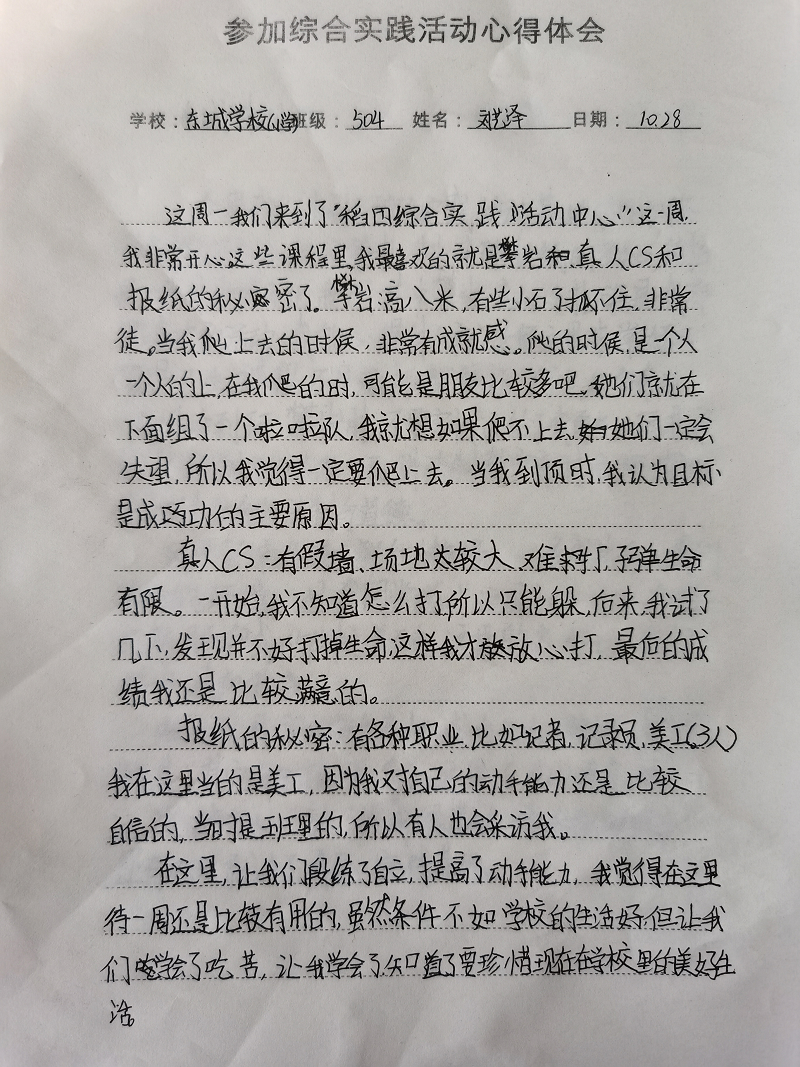 参加综合实践活动心得体会
学校：东城学校(小学)班级：504 姓名：刘艺泽 日期：10.28
这周一我们来到了“稻田综合实践活动中心”这一周，
我非常开心这些课程里，我最喜欢的就是攀岩和真人CS和
报纸的秘密了。攀岩高八米，有些小石子抓不住，非常
徒。当我爬上去的时候，非常有成就感。爬的时候，是一个人
一个人的上，在我爬的时，可能是朋友比较多吧，她们就在
下面组了一个啦啦队，我就想如果爬不上去，她们一定会
失望，所以我觉得一定要爬上去。当我到顶时，我认为目标
是成功的主要原因。
真人CS：有假墙、场地太较大，难，子弹生命
有限。一开始，我不知道怎么打所以只能躲，后来，我试了
几下，发现并不好打掉生命，这样我才放心打，最后的成
绩我还是比较满意的。
报纸的秘密：有各种职业，比如记者，记录员，美工(3人)
我在这里当的是美工，因为我对自己的动手能力还是比较
自信的，当时是班里的，所以有人也会采访我。
在这里，让我们段练了自立，提高了动手能力，我觉得在这里
待一周还是比较有用的，虽然条件不如学校的生活好，但让我
们学会了吃苦，让我学会了知道了要珍惜现在在学校里的美好生
活。